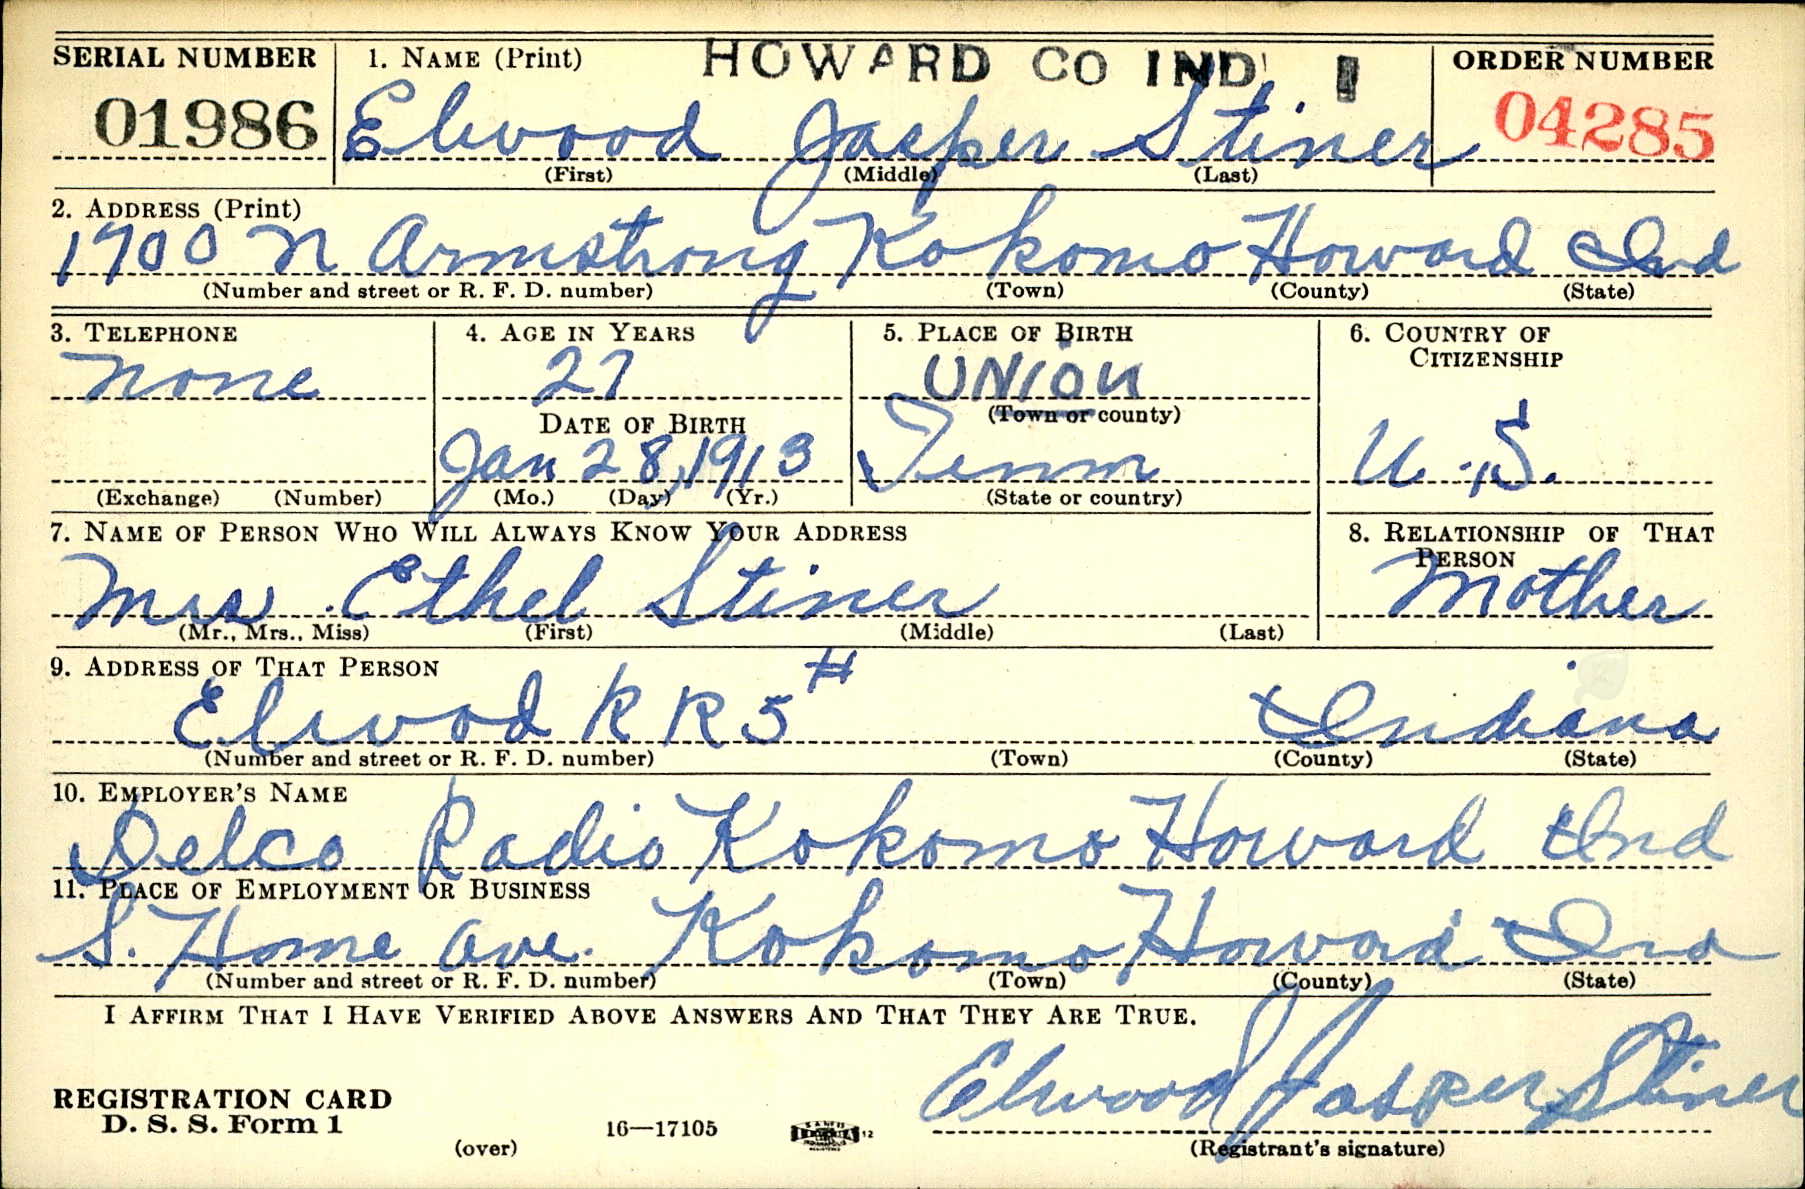 SERIAL NUMBER 1. NAME (Print) HOWARD CO IND 1 ORDER NUMBER
01986 Elwood Jasper Stiner 04285
(First) (Middle) (Last)
2. ADDRESS (Print)
1700 N Armstrong Kokomo Howard Ind
(Number and street or R. F. D. number) (Town) (County) (State)
3. TELEPHONE 4. AGE IN YEARS 5. PLACE OF BIRTH 6. COUNTRY OF CITIZENSHIP
None 27 UNION
DATE OF BIRTH (Town or county)
Jan 28, 1913 Tenn U.S.
(Exchange) (Number) (Mo.) (Day) (Yr.) (State or country)
7. NAME OF PERSON WHO WILL ALWAYS KNOW YOUR ADDRESS 8. RELATIONSHIP OF THAT PERSON
Mrs. Ethel Stiner Mother
(Mr., Mrs., Miss) (First) (Middle) (Last)
9. ADDRESS OF THAT PERSON
Elwood R R 5# Indiana
(Number and street or R. F. D. number) (Town) (County) (State)
10. EMPLOYER'S NAME
Delco Radio Kokomo Howard Ind
11. PLACE OF EMPLOYMENT OR BUSINESS
S. Home Ave. Kokomo Howard Ind
(Number and street or R. F. D. number) (Town) (County) (State)
I AFFIRM THAT I HAVE VERIFIED ABOVE ANSWERS AND THAT THEY ARE TRUE.
Elwood Jasper Stiner
REGISTRATION CARD
D. S. S. Form 1
(over) 16—17105 12 (Registrant's signature)